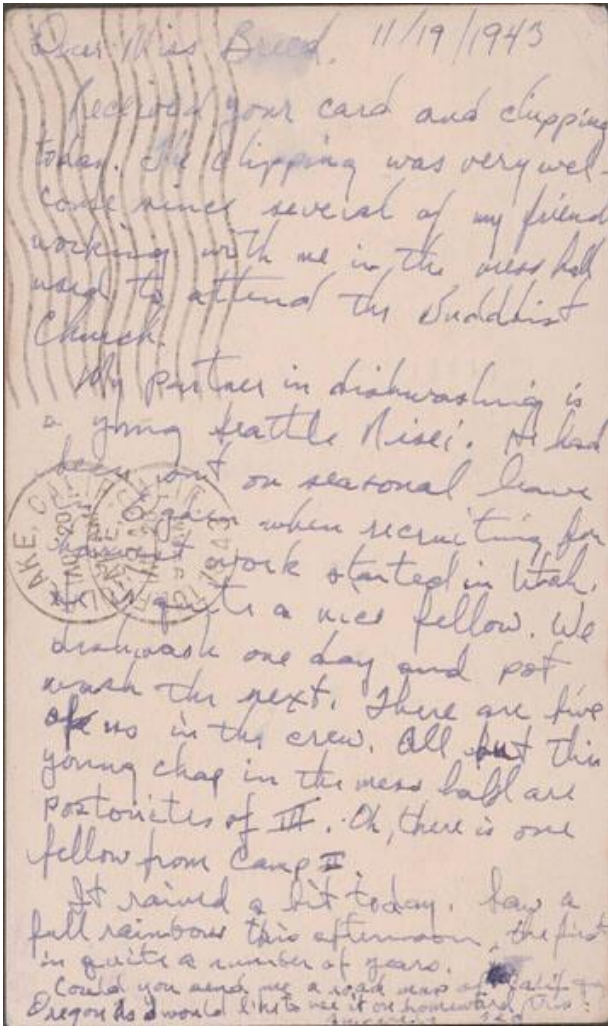 Dear Miss Breed, 11/19/1943
Received your card and clipping
today. The clipping was very wel-
come since several of my friend
working with me in the mess hall
used to attend the Buddhist
Church.
My partner in dishwashing is
a young Seattle Nisei. He had
been out on seasonal leave
when recruiting for
harvest work started in Utah.
quite a nice fellow. We
dishwash one day and pot
wash the next. There are five
of us in the crew. All but this
young chap in the mess hall are
Postonites of III. Oh, there is one
fellow from Camp II.
It rained a bit today. Saw a
full rainbow this afternoon, the first
in quite a number of years.
Could you send me a road map of Calif
Oregon as I would like to use it on homeward trip
LAKE, CALIF.
NOV 20